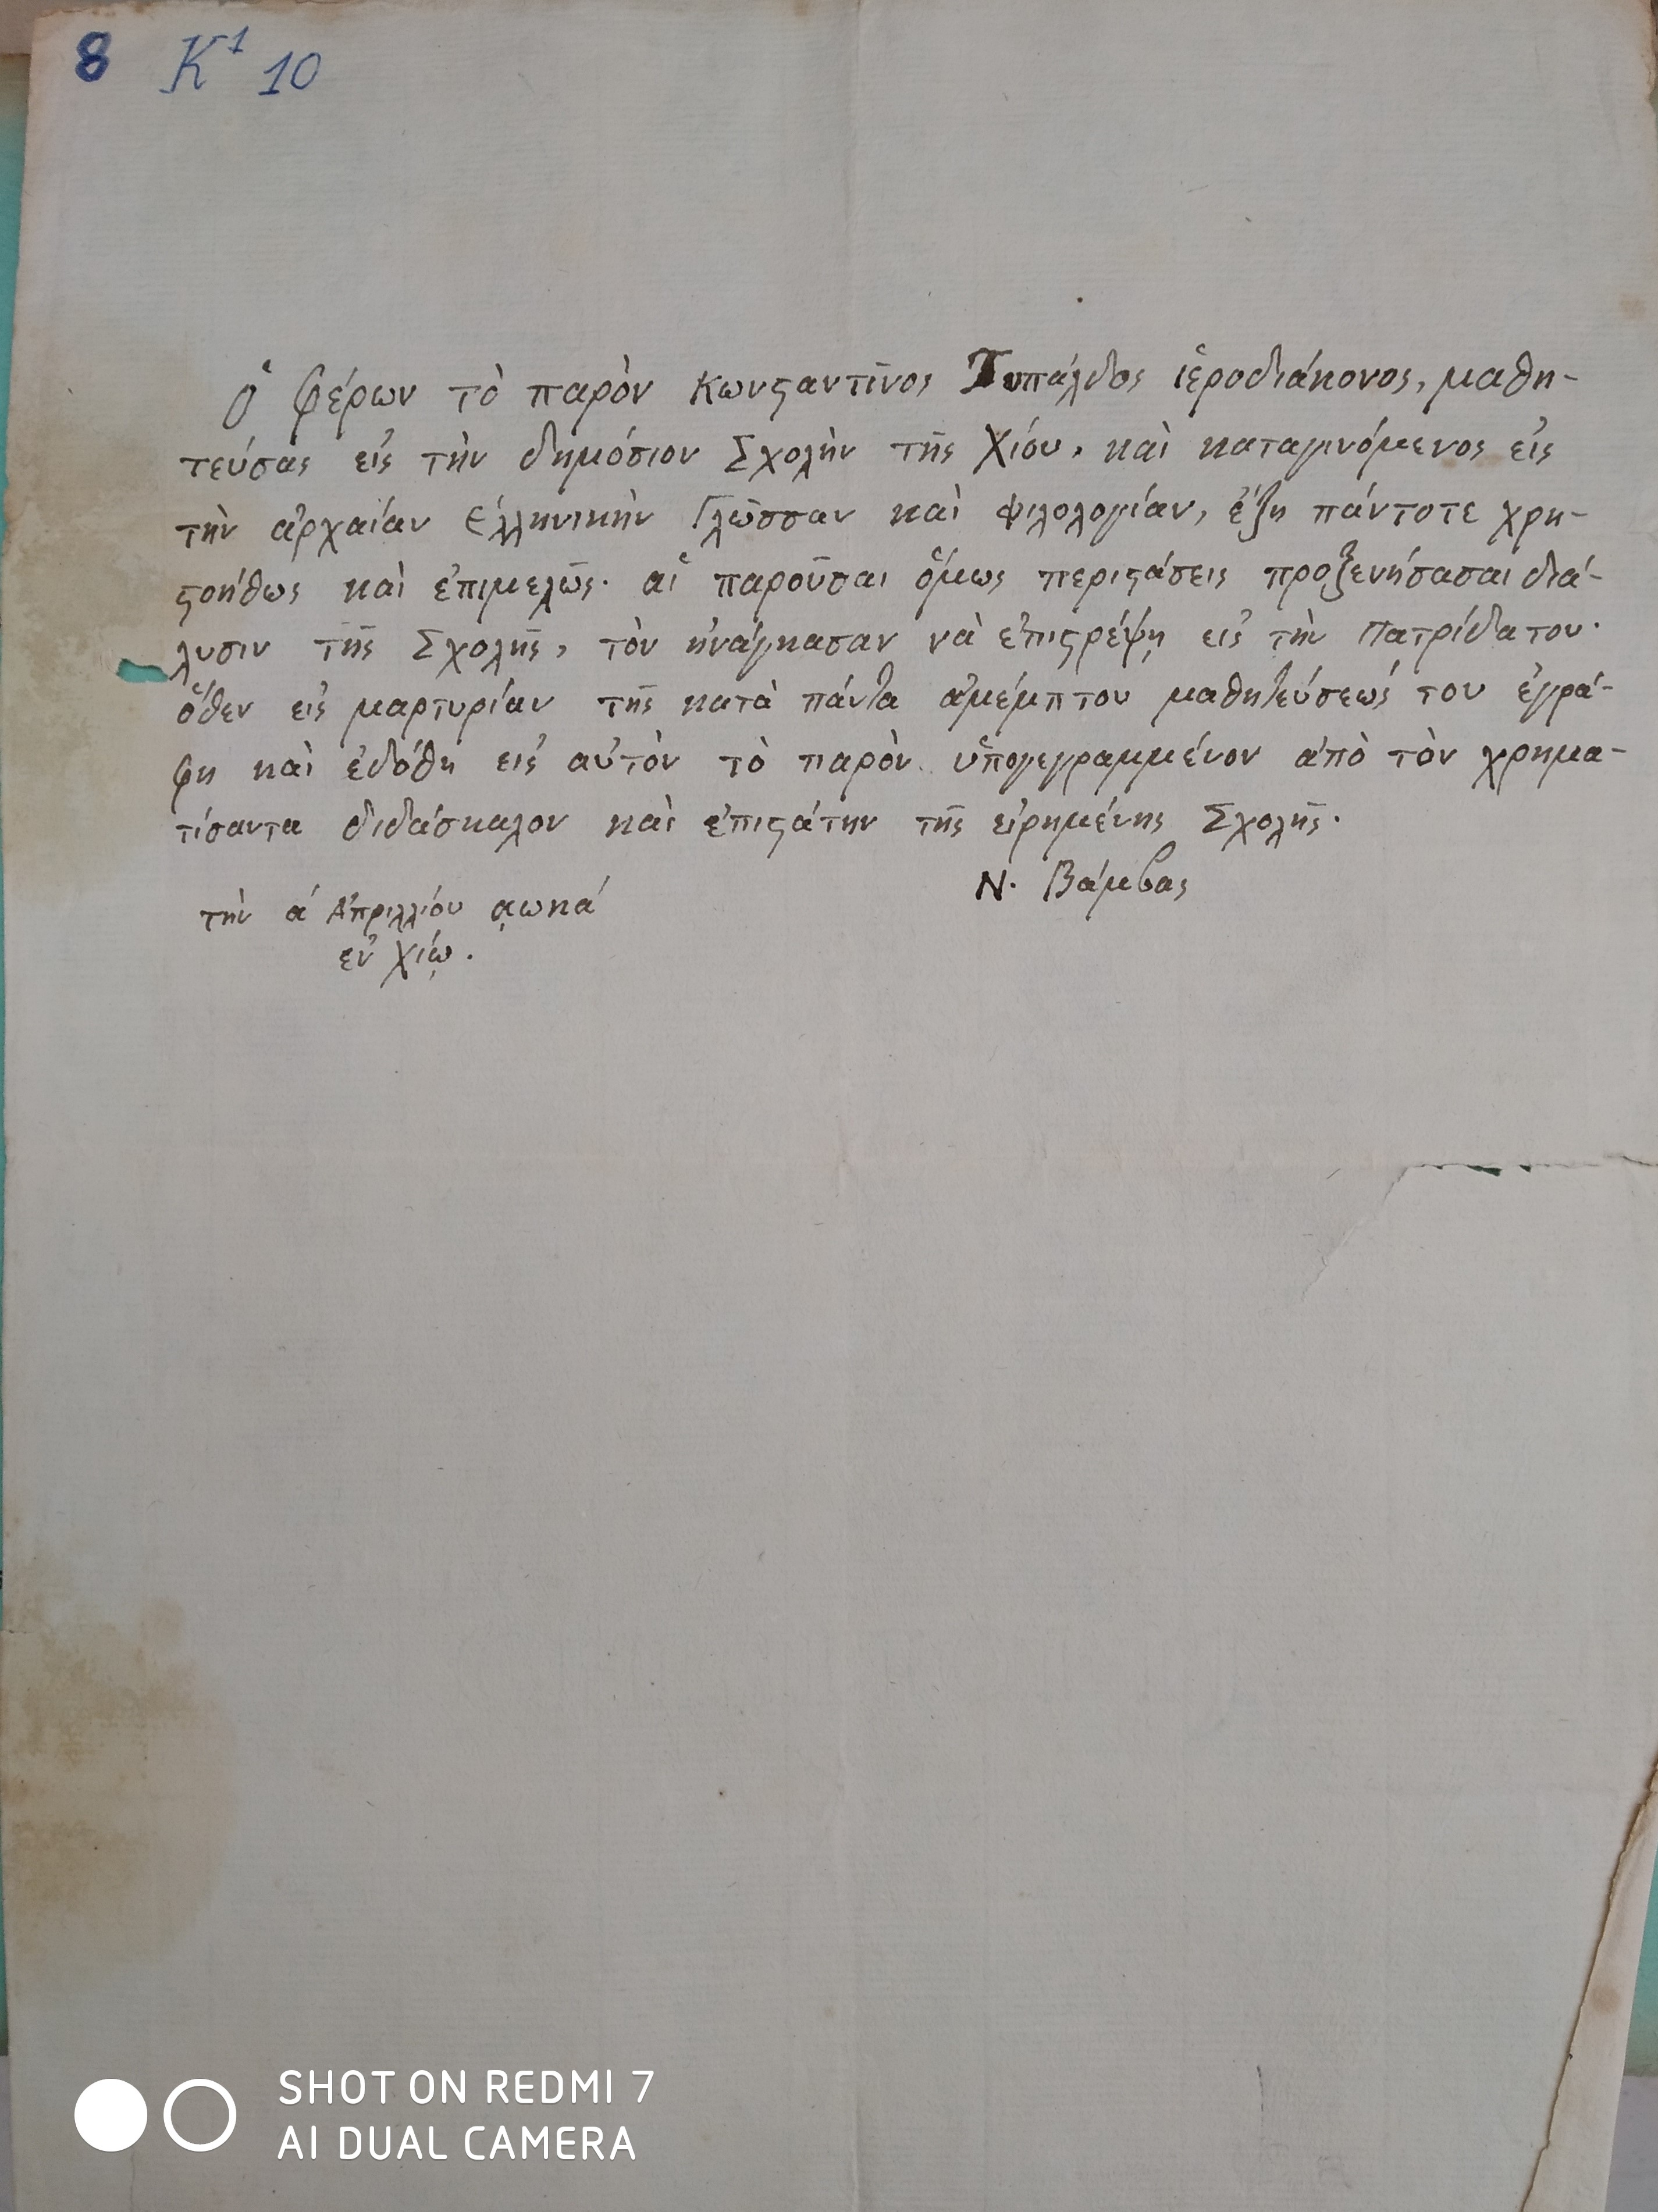 8 Κ¹ 10
ὁ φέρων τὸ παρὸν Κωνϛαντῖνος Τυπάλδος ἱεροδιάκονος, μαθη-
τεύσας εἰς τὴν δημόσιον Σχολὴν τῆς Χίου, καὶ καταγινόμενος εἰς
τὴν ἀρχαίαν Ἑλληνικὴν Γλῶσσαν καὶ φιλολογίαν, ἔζη πάντοτε χρη-
ϛοήθως καὶ ἐπιμελῶς· αἱ παροῦσαι ὅμως περιϛάσεις προξενήσασαι διά-
λυσιν τῆς Σχολῆς, τὸν ἠνάγκασαν νὰ ἐπιϛρέψῃ εἰς τὴν Πατρίδα του·
ὅθεν εἰς μαρτυρίαν τῆς κατὰ πάντα ἀμέμπτου μαθητεύσεώς του ἐγρά-
φη καὶ ἐδόθη εἰς αὐτὸν τὸ παρὸν ὑπογεγραμμένον ἀπὸ τὸν χρημα-
τίσαντα διδάσκαλον καὶ ἐπιϛάτην τῆς εἰρημένης Σχολῆς·
Ν. Βάμβας
τὴν ά Ἀπριλλίου ͵αωκά
ἐν Χίῳ.
SHOT ON REDMI 7
AI DUAL CAMERA